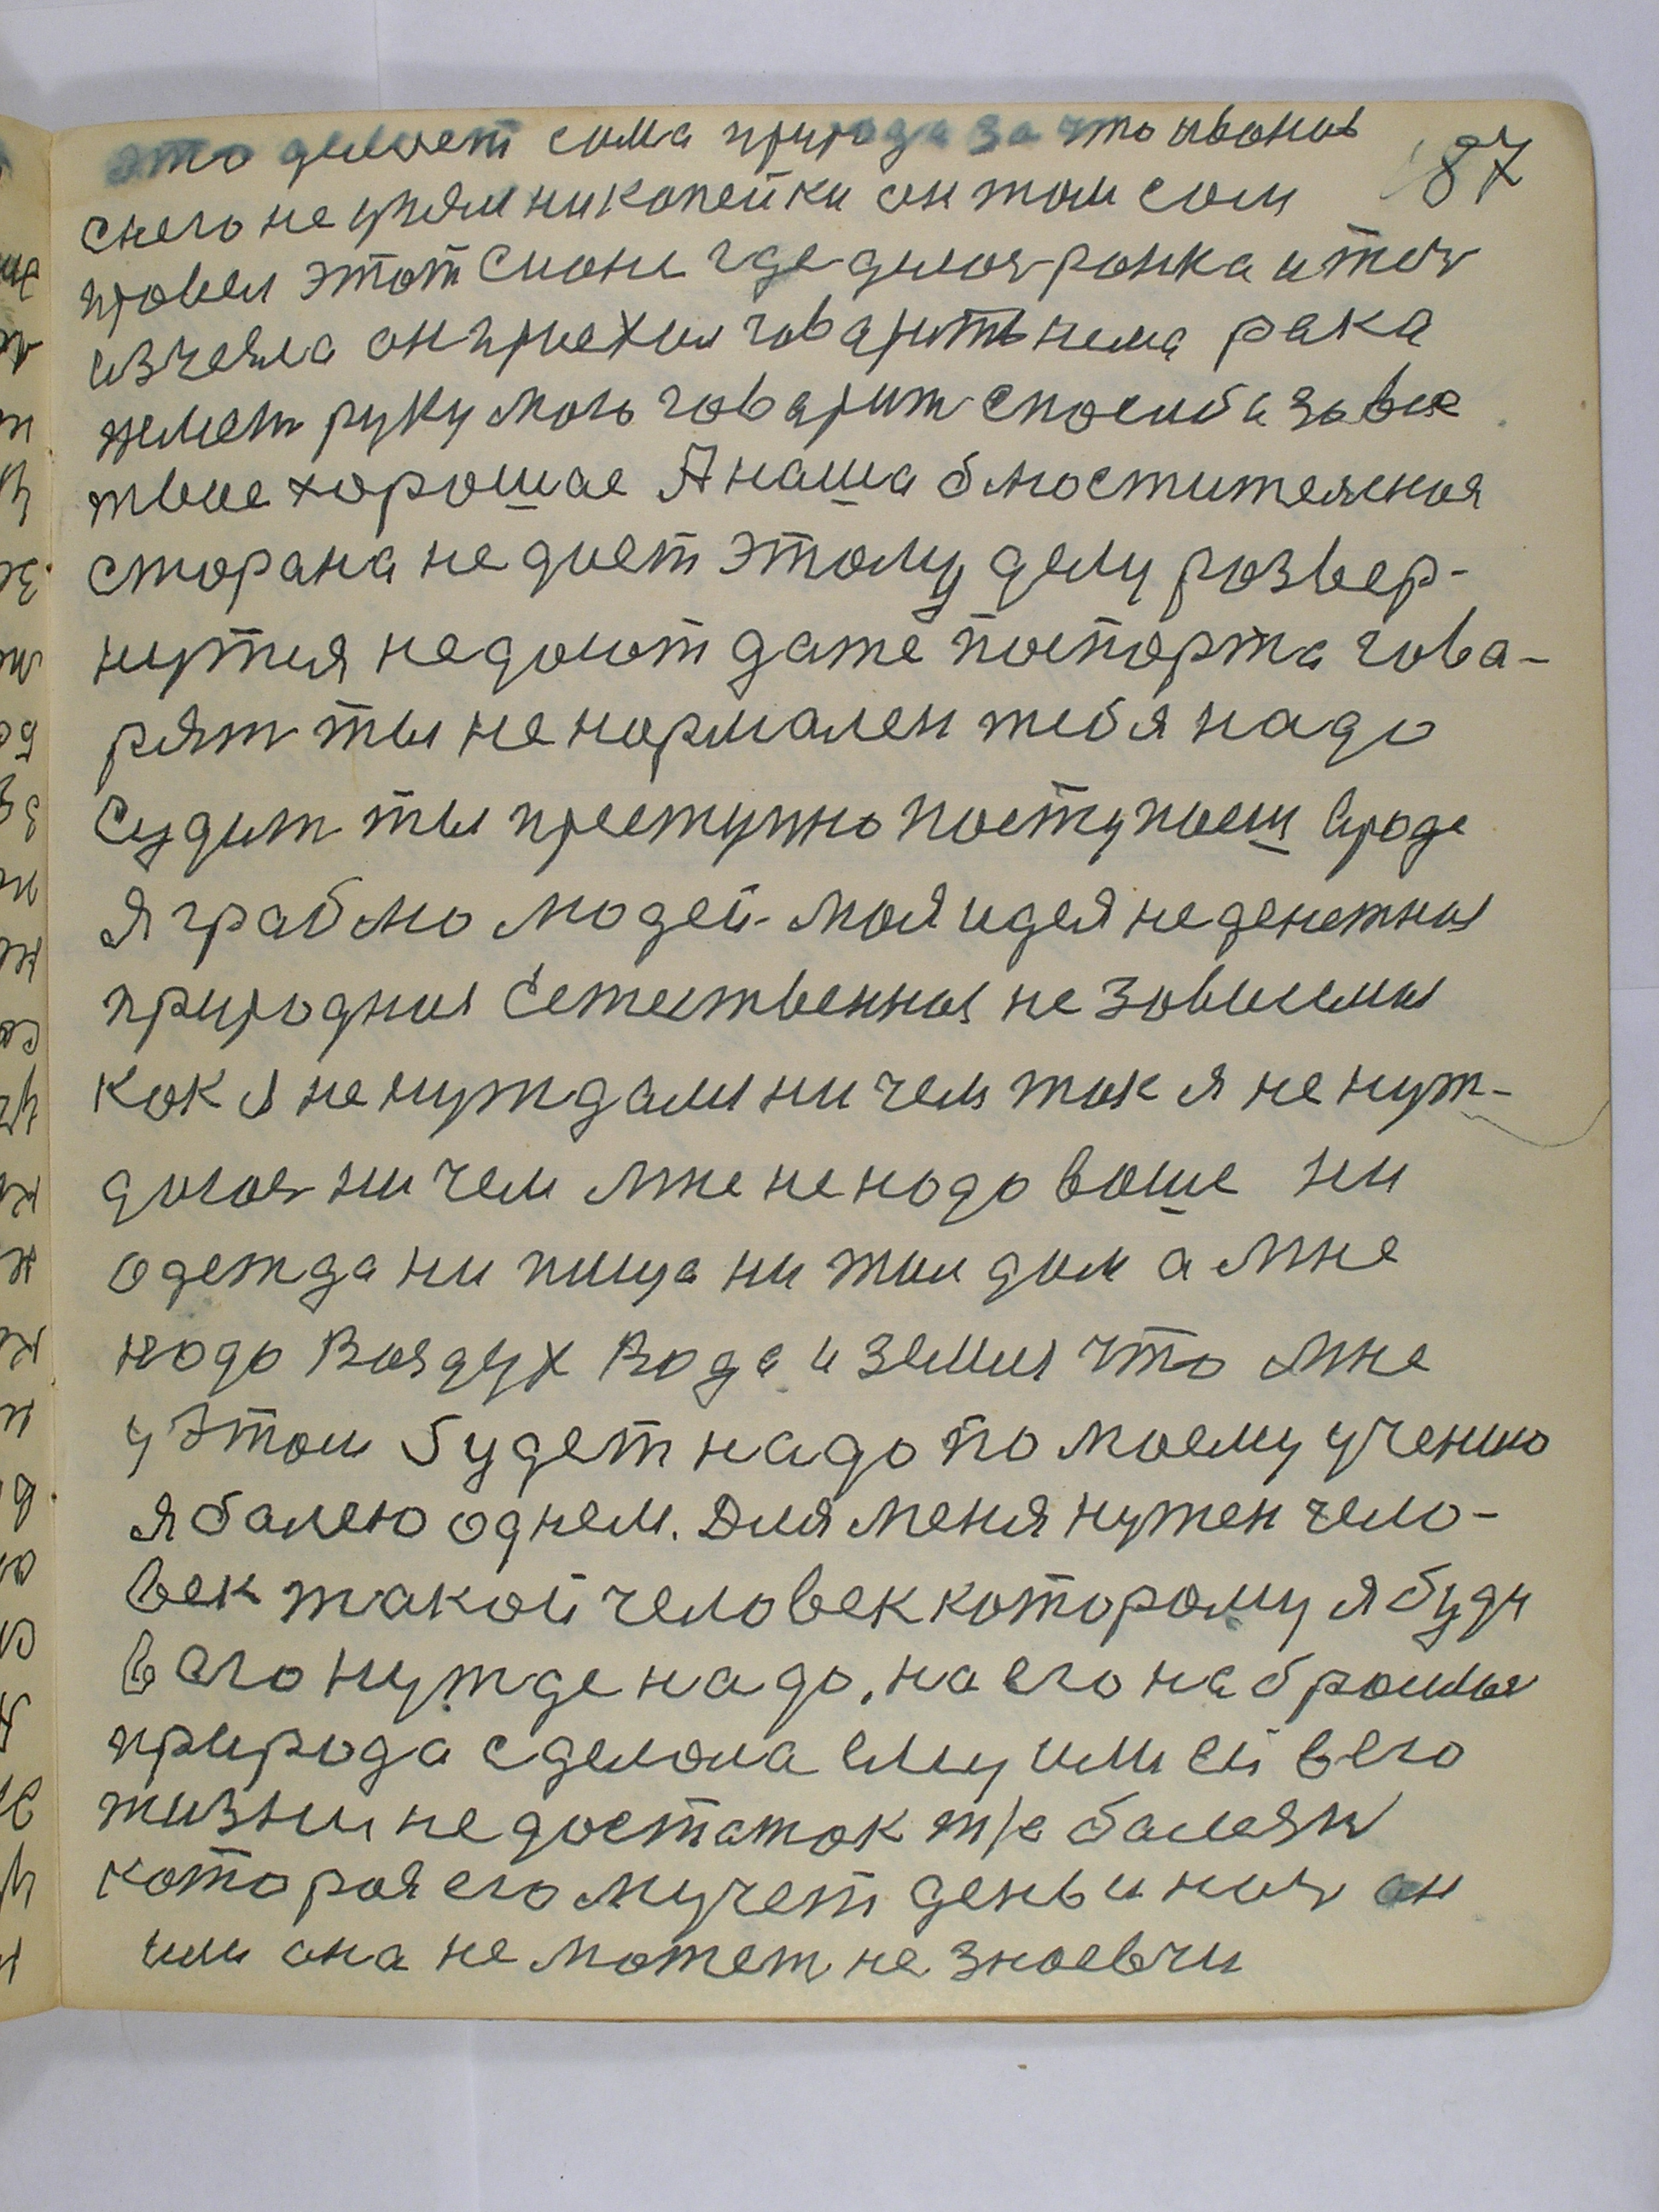 это делает сома природа за что иванов 87
снего не узял ни копейки он там сам
провел этот
изчезла он приехал говарить нема рака
жмет руку мою говарит спосиба за вse
твое хорошае А наша блюстительная
сторана не дает этому делу розвер-
нутия не дают даже поспорта гова-
рят ты не нормален тебя надо
судит ты преступно поступоеш вроде
я граблю людей. моя идея не денежная
природная Естественная не зовисимая
кок я не нуждался ни чем ток я не нуж-
доюс ни чем мне не нодо ваше ни
одежда ни пища ни жил дом а мне
нодо Воздух Вода и земля что мне
у этом будет надо по моему учению
я балею однем. Для меня нужен чело-
век такой человек которому я буду
в его нужде надо. на его набросилася
природа сделола ему или ей в его
жизни не достаток т/е балезн
которая его мучет день и ноч он
или она не может не